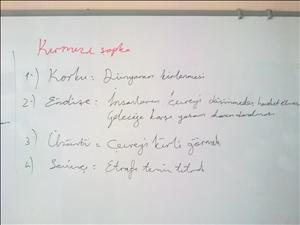 Kırmızı şapka
1-) Korku: Dünyanın kirlenmesi
2-) Endişe: İnsanların çevreyi düşünmeden hareket etmesi
Geleceğe karşı yaşam
3) Üzüntü = Çevreyi kirli görmek
4) Sevinç: Etrafı temiz